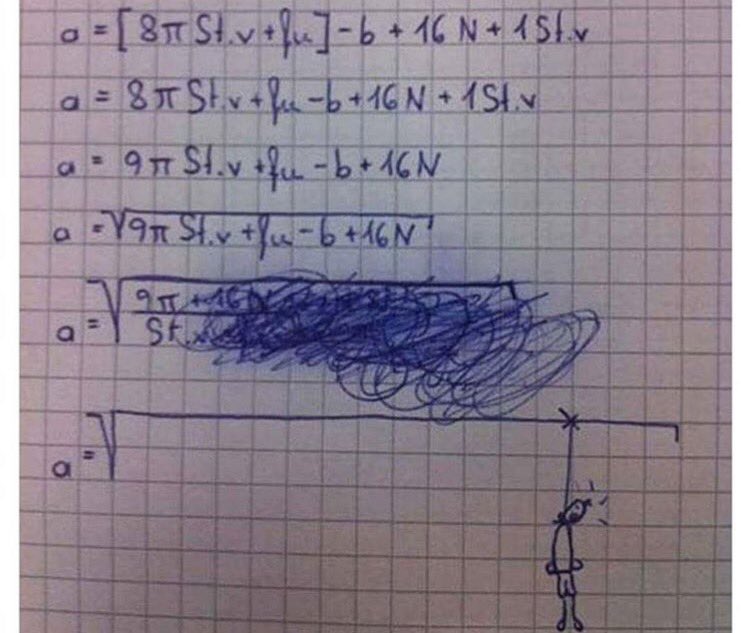 a = [8π St.v + fu] - b + 16 N + 1 St.v
a = 8π St.v + fu - b + 16N + 1 St.v
a = 9π St.v + fu - b + 16N
a = √9π St.v + fu - b + 16N
a = √9π + 16N
St.
a = √